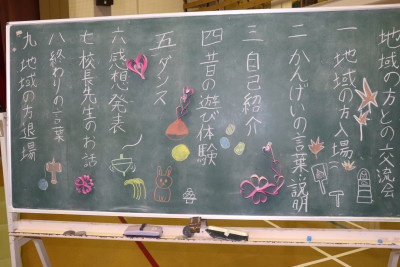 地域の方との交流会
一 地域の方入場
二 かんげいの言葉・説明
三 自己紹介
四 昔の遊び体験
五 ダンス
六 感想発表
七 校長先生のお話
八 終わりの言葉
九 地域の方退場